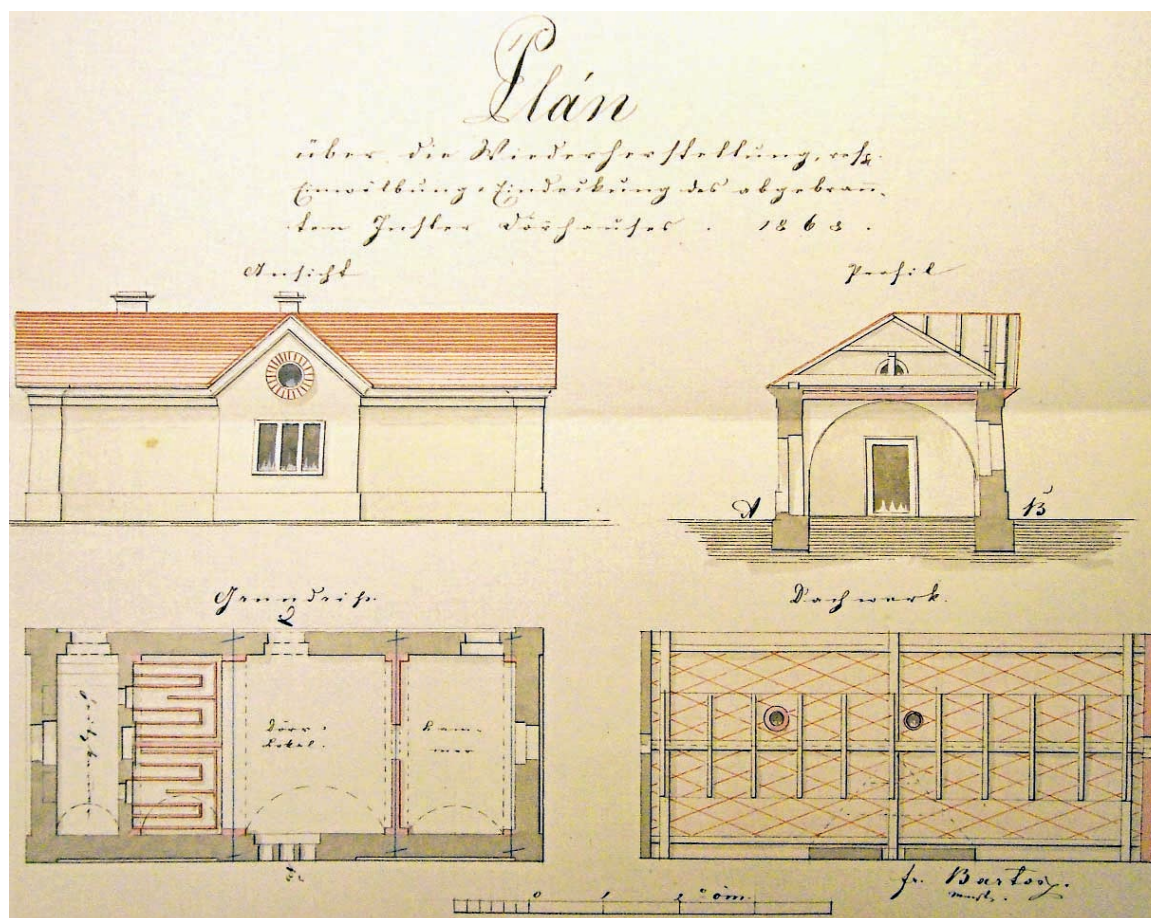 Plán
über die Wiederherstellung, resp.
Einwölbung & Eindeckung des abgebrann-
ten Dörrhauses. 1868.
Ansicht
Profil
A
B
Grundriß.
Dachwerk.
Dörr-
Lokal.
Kam-
mer
0 1 2 öm.
Fr. Bartoš.